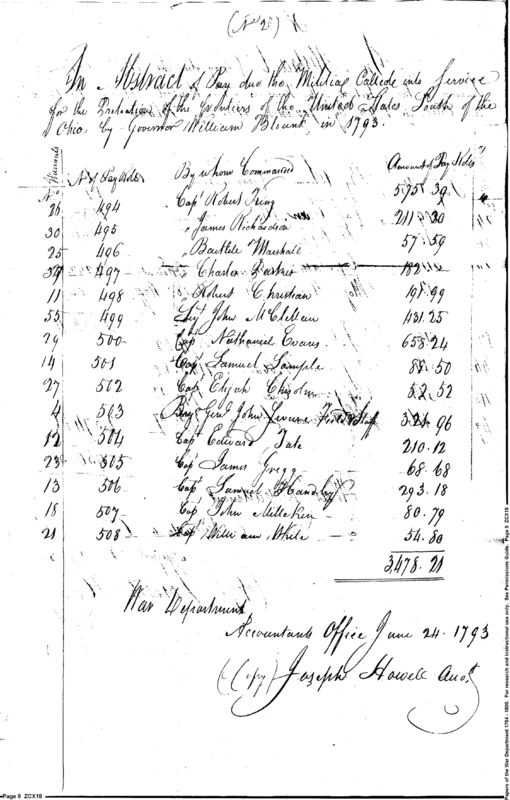 (No 2)
An Abstract of Pay due the Militia Called into Service
for the Protection of the frontiers of the United States South of the
Ohio, by Governor William Blount, in 1793.
No Warrants No of Pay Rolls By whom Commanded Amount of Pay Rolls
26 494 Capt Robert King 575.39
30 495 " James Richardson 211.30
25 496 " Bartlele Marshall 57.59
34 497 " Charles Parker 182
11 498 " Robert Christian 191.99
55 499 Lt John McClellan 431.25
29 500 Capt Nathaniel Evans 653.24
14 501 Capt Samuel Sample 88.50
27 502 Capt Elijah Chisolm 52.52
4 503 Brig Genl John Sevier Field & Staff 321.96
12 504 Capt Edward Tate 210.12
23 505 Capt James Gregg 68.68
13 506 Capt Samuel Handley 293.18
18 507 Capt John Milleken 80.79
21 508 Capt William White 54.80
3,478.21
War Department
Accountants Office June 24. 1793
(Copy) Joseph Howell Acct
Page 9 ZCX18
Papers of the War Department 1784 - 1800. For research and instructional use only. See Permissions Guide. Page 9 ZCX18